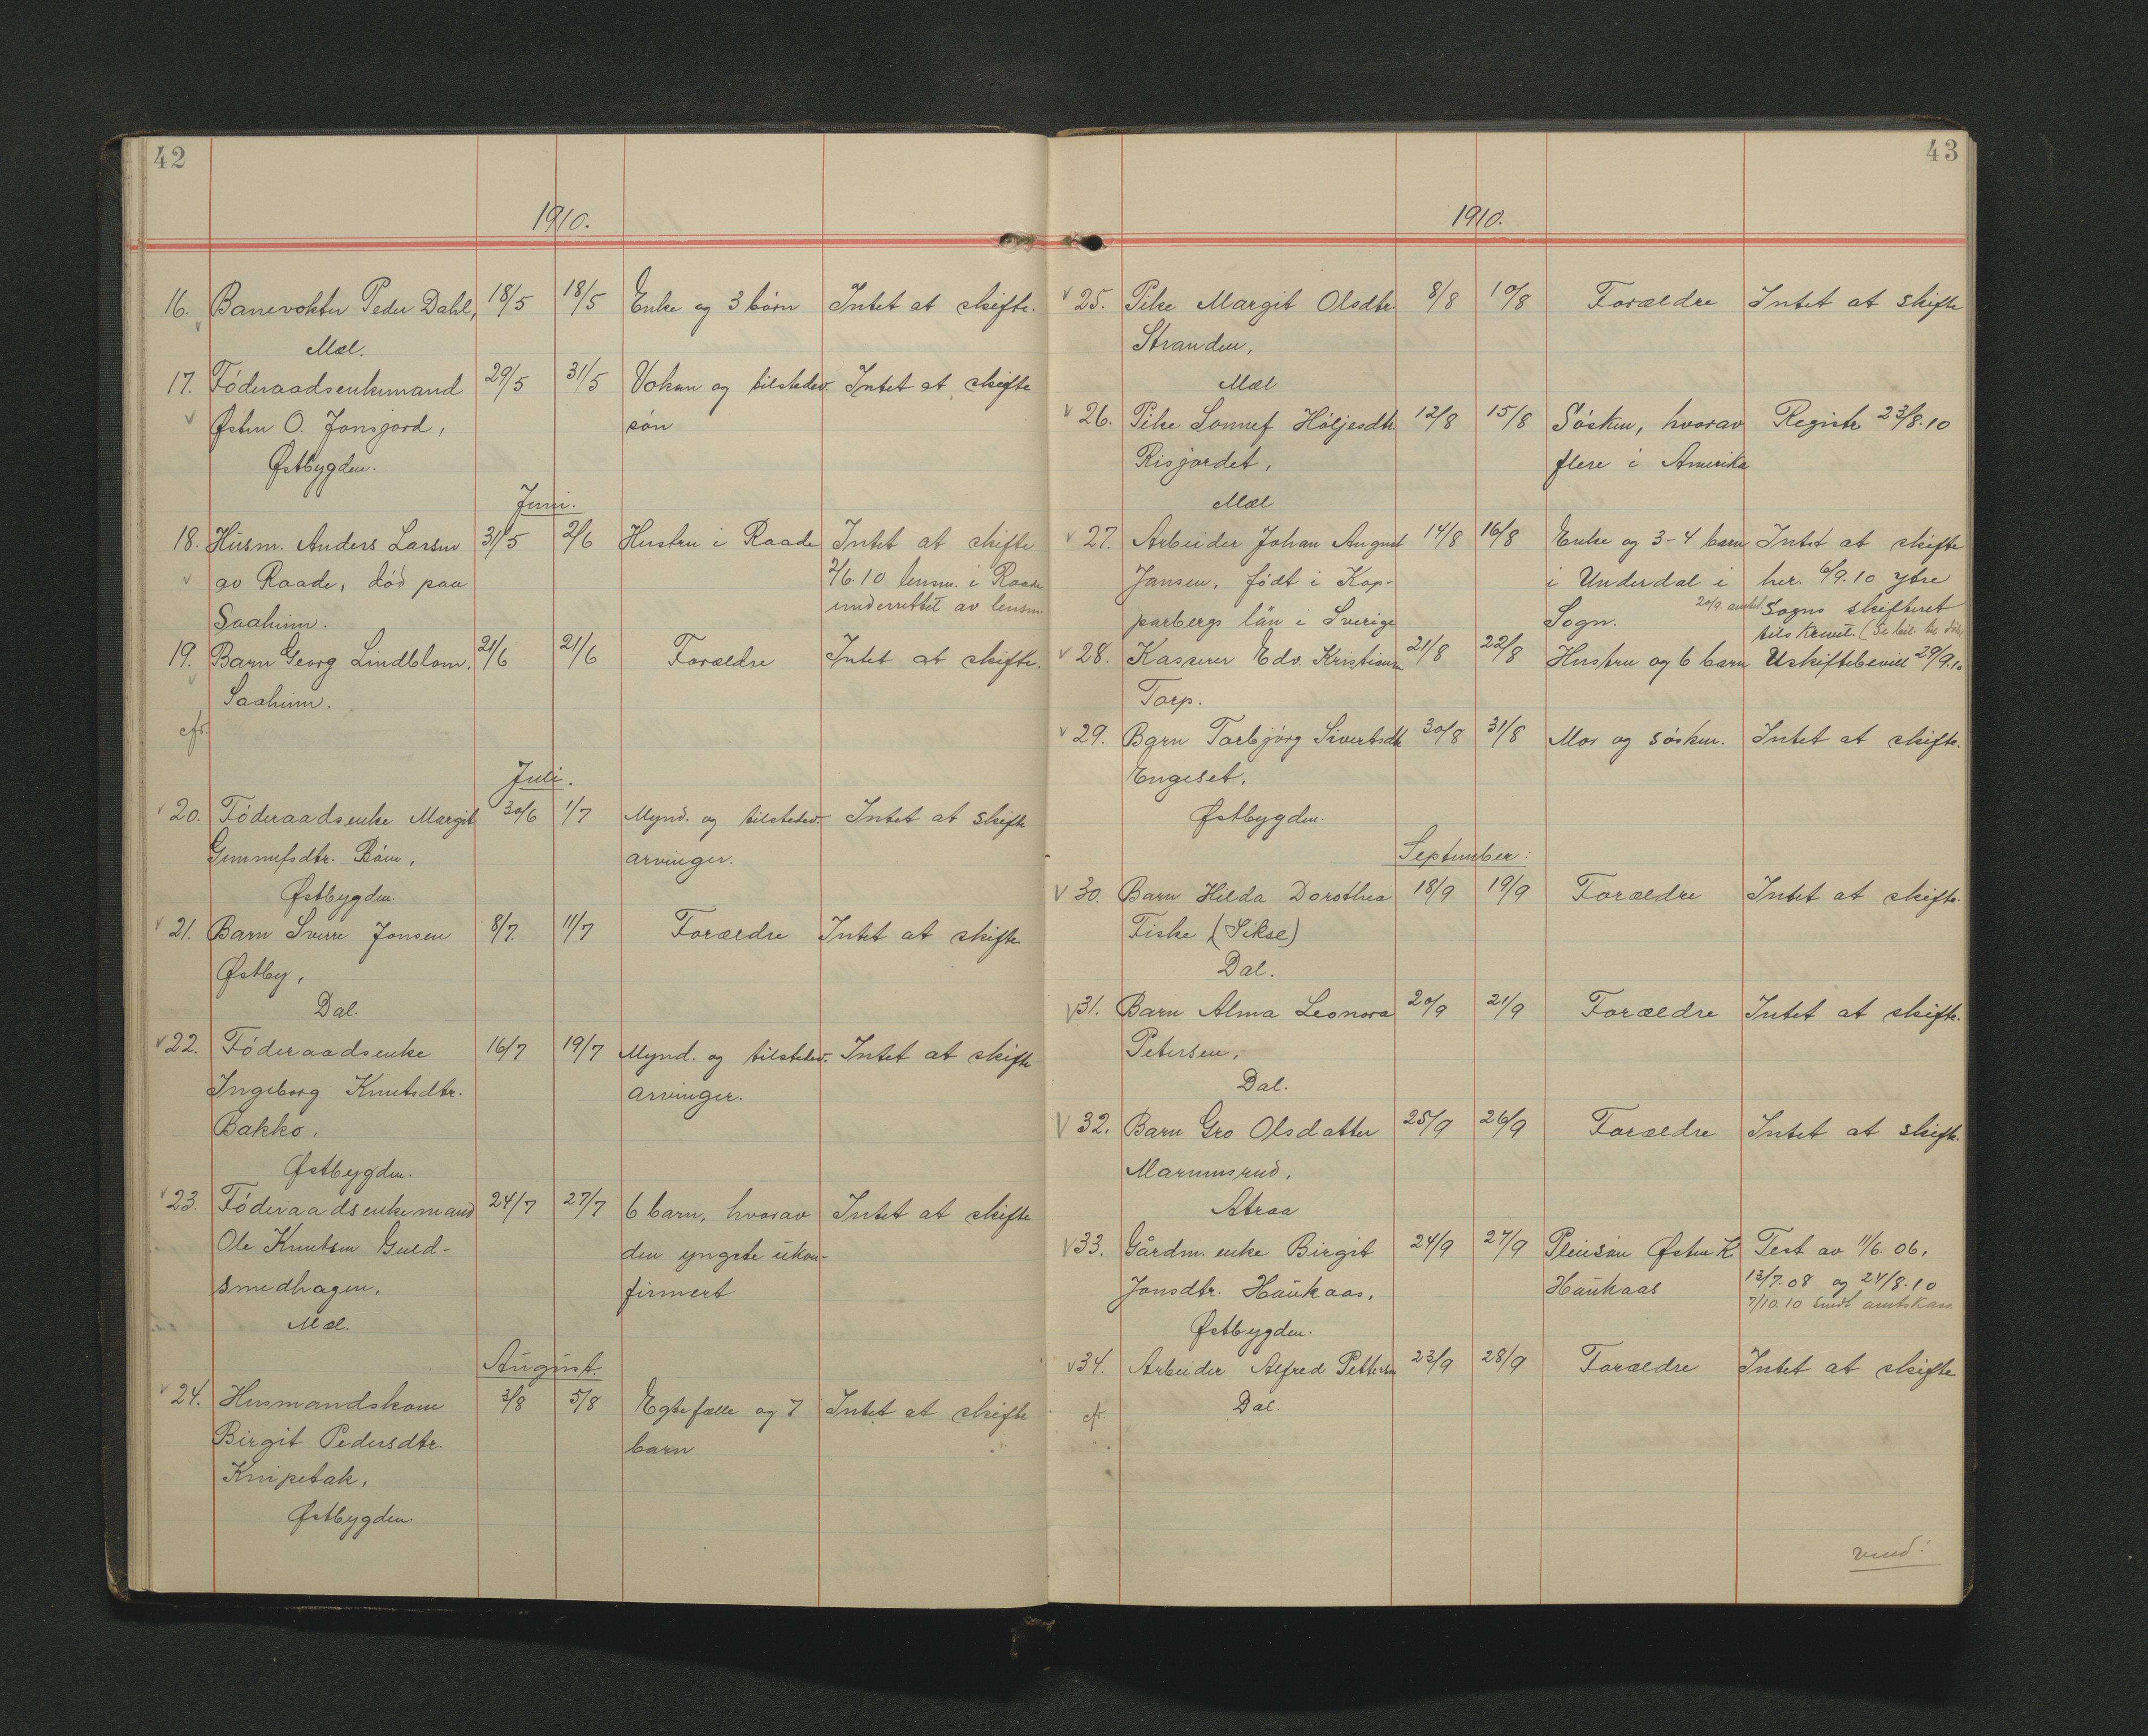 42
1910.
16. Banevokter Peder Dahl, 18/5 18/5 Enke og 3 børn Intet at skifte.
Mæl.
17. Föderaadsenkemand 29/5 31/5 Voksen og tilstedev. Intet at skifte
Østen O. Jonsjord, søn
Østbygden.
Juni.
18. Husm. Anders Larsen 31/5 2/6 Hustru i Raade Intet at skifte
av Raade, död paa 2/6.10 lensm. i Raade
Saaheim. underrettet av lensm.
19. Barn Georg Lindblom, 21/6 21/6 Forældre Intet at skifte.
Saaheim.
cfr.
Juli.
20. Föderaadsenke Margit 30/6 1/7 Mynd. og tilstedev. Intet at skifte
Gunnufsdtr. Böen, arvinger.
Østbygden.
21. Barn Sverre Jonsen 8/7 11/7 Forældre Intet at skifte
Østby,
Dal.
22. Föderaadsenke 16/7 19/7 Mynd. og tilstedev. Intet at skifte
Ingeborg Knutsdtr. arvinger.
Bakko,
Østbygden.
23. Föderaadsenkemand 24/7 27/7 6 barn, hvorav Intet at skifte
Ole Knutsen Guld- den yngste ukon-
smedhagen, firmert
Mæl.
August.
24. Husmandskone 3/8 5/8 Egtefælle og 7 Intet at skifte
Birgit Pedersdtr. barn
Knipetak,
Østbygden.
43
1910.
25. Pike Margit Olsdtr. 8/8 10/8 Forældre Intet at skifte
Stranden,
Mæl
26. Pike Sonnef Höljesdtr. 12/8 15/8 Søsken, hvorav Registr. 23/8.10
Risjordet, flere i Amerika
Mæl
27. Arbeider Johan August 14/8 16/8 Enke og 3-4 barn Intet at skifte
Jansen, födt i Kop- i Underdal i her. 6/9.10 ytre
parbergs län i Sverige Sogn. 20/9 Sogns skifteret
tilskrevet.
28. Kasserer Edv. Kristiansen 21/8 22/8 Hustru og 6 barn Uskiftebevill 29/9.10
Torp.
29. Barn Torbjörg Sivertsdtr. 30/8 31/8 Mor og søsken. Intet at skifte.
Engeset,
Østbygden.
September:
30. Barn Hilda Dorothea 18/9 19/9 Forældre Intet at skifte.
Fiske (Sikse)
Dal.
31. Barn Alma Leonora 20/9 21/9 Forældre Intet at skifte.
Petersen,
Dal.
32. Barn Gro Olsdatter 25/9 26/9 Forældre Intet at skifte.
Marumsrud,
Atraa
33. Gårdm. enke Birgit 24/9 27/9 Pleiesøn Østen K. Test av 11/6.06,
Jonsdtr. Haukaas, Haukaas 13/7.08 og 24/8.10
7/10.10 sendt amtskass.
Østbygden.
34. Arbeider Alfred Pettersen 23/9 28/9 Forældre Intet at skifte
cfr. Dal.
vend!